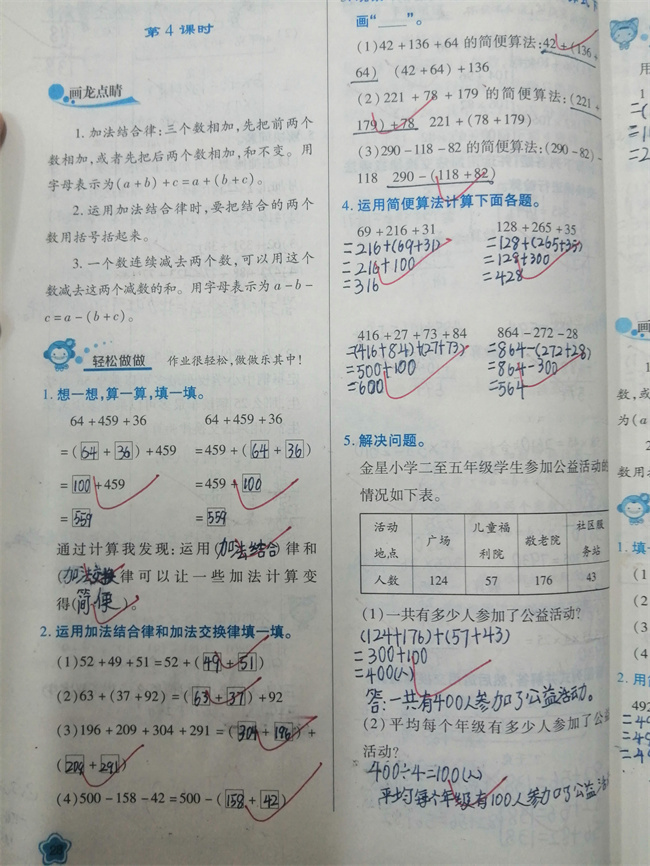 第4课时
画龙点睛
1. 加法结合律:三个数相加,先把前两个
数相加,或者先把后两个数相加,和不变。用
字母表示为(a+b)+c=a+(b+c)。
2. 运用加法结合律时,要把结合的两个
数用括号括起来。
3. 一个数连续减去两个数,可以用这个
数减去这两个减数的和。用字母表示为a-b-
c=a-(b+c)。
轻松做做 作业很轻松,做做乐其中!
1. 想一想,算一算,填一填。
64+459+36 64+459+36
=(64+36)+459 =459+(64+36)
=100+459 =459+100
=559 =559
通过计算我发现:运用(加法结合)律和
(加法交换)律可以让一些加法计算变
得(简便)。
2. 运用加法结合律和加法交换律填一填。
(1)52+49+51=52+(49+51)
(2)63+(37+92)=(63+37)+92
(3)196+209+304+291=(304+196)+
(209+291)
(4)500-158-42=500-(158+42)
画“____”。
(1)42+136+64的简便算法:42+(136+
64) (42+64)+136
(2)221+78+179的简便算法:(221+
179)+78 221+(78+179)
(3)290-118-82的简便算法:(290-82)-
118 290-(118+82)
4. 运用简便算法计算下面各题。
69+216+31 128+265+35
=216+(69+31) =128+(265+35)
=216+100 =128+300
=316 =428
416+27+73+84 864-272-28
=(416+84)+(27+73) =864-(272+28)
=500+100 =864-300
=600 =564
5. 解决问题。
金星小学二至五年级学生参加公益活动的
情况如下表。
活动地点 广场 儿童福利院 敬老院 社区服务站
人数 124 57 176 43
(1)一共有多少人参加了公益活动?
(124+176)+(57+43)
=300+100
=400(人)
答:一共有400人参加了公益活动。
(2)平均每个年级有多少人参加了公益
活动?
400÷4=100(人)
平均每个年级有100人参加了公益活